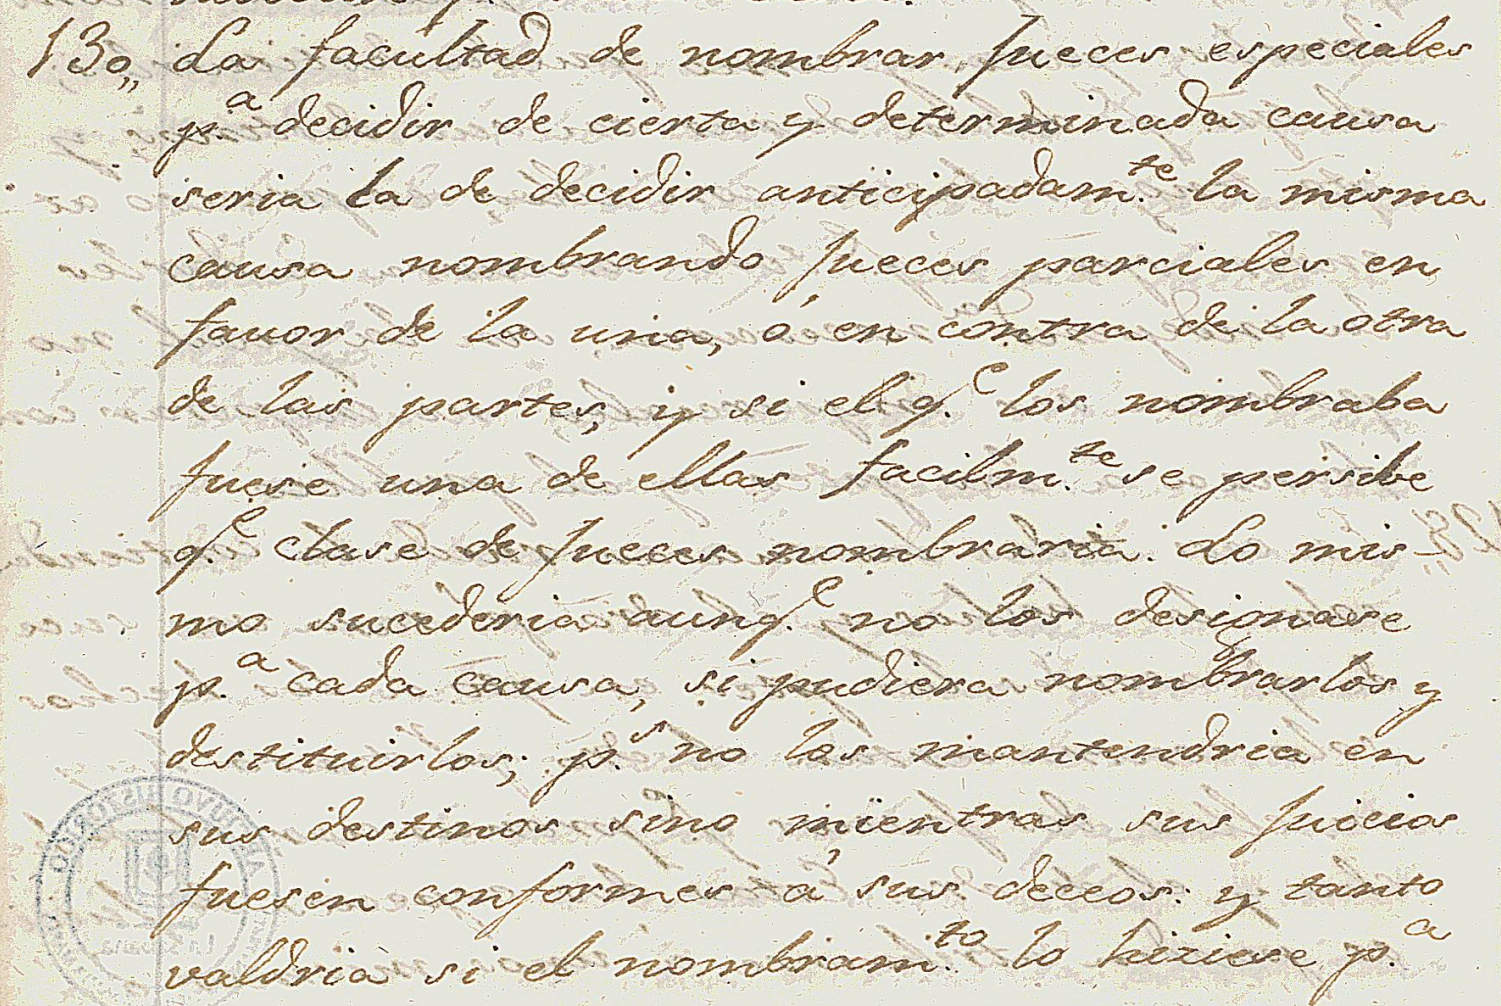 13o,, La facultad de nombrar Jueces especiales
p.ª decidir de cierta y determinada causa
seria la de decidir anticipadam.te la misma
causa nombrando Jueces parciales en
favor de la una, ó en contra de la otra
de las partes, y si el q.e los nombraba
fuese una de ellas facilm.te se persibe
q.e clase de Jueces nombraria. Lo mis-
mo sucederia aunq.e no los designase
p.a cada causa, si pudiera nombrarlos y
destituirlos; p.s no los mantendria en
sus destinos sino mientras sus Juicios
fuesen conformes á sus deceos: y tanto
valdria si el nombram.to lo hiziese p.a